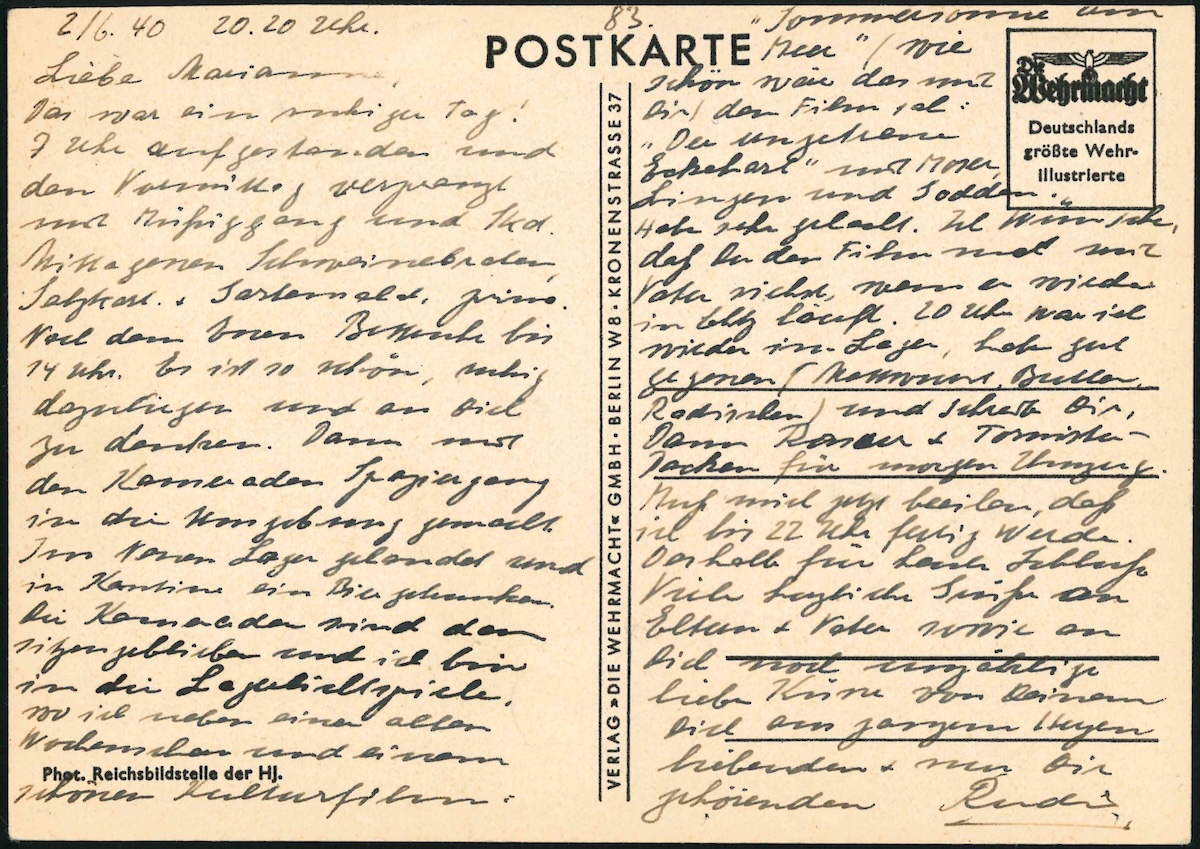 2/6. 40 20.20 Uhr.
Liebe Marianne,
Das war ein ruhiger Tag!
7 Uhr aufgestanden und
den Vormittag
mit Müßiggang und Skd.
Mittagessen Schweinebraten,
Salzkart. + prima.
Nach dem Essen Bettruhe bis
14 Uhr. Es ist so schön, ruhig
dazuliegen und an Dich
zu denken. Dann mit
den Kameraden Spaziergang
in die Umgebung gemacht.
Im Neuen Lager gelandet und
in Kantine ein Bier getrunken.
Die Kameraden sind dann
sitzengeblieben und ich bin
in die Lagerlichtspiele,
wo ich neben einer alten
Wochenschau und einem
Phot. Reichsbildstelle der HJ.
schönen Kulturfilm:
VERLAG »DIE WEHRMACHT« GMBH · BERLIN W8 · KRONENSTRASSE 37
83.
POSTKARTE
Die
Wehrmacht
Deutschlands
größte Wehr-
illustrierte
"Sommersonne am
Meer" (wie
schön wäre das mit
Dir) den Film sah:
"Der ungetreue
Eckehart" mit Moser,
Lingen und
Habe sehr gelacht. Ich wünsche,
daß Du den Film und mit
Vater siehst, wenn er wieder
in läuft. 20 Uhr war ich
wieder im Lager, habe gut
gegessen (Mettwurst, Butter,
Radieschen) und schreibe Dir,
Dann + Tornister-
packen für morgen Umzug.
Muß mich jetzt beeilen, daß
ich bis 22 Uhr fertig werde.
Deshalb für heute Schluß
Viele herzliche Grüße an
Eltern + Vater sowie an
Dich noch unzählige
liebe Küsse von Deinem
Dich aus ganzem Herzen
liebenden + nur Dir
gehörenden Rudi.